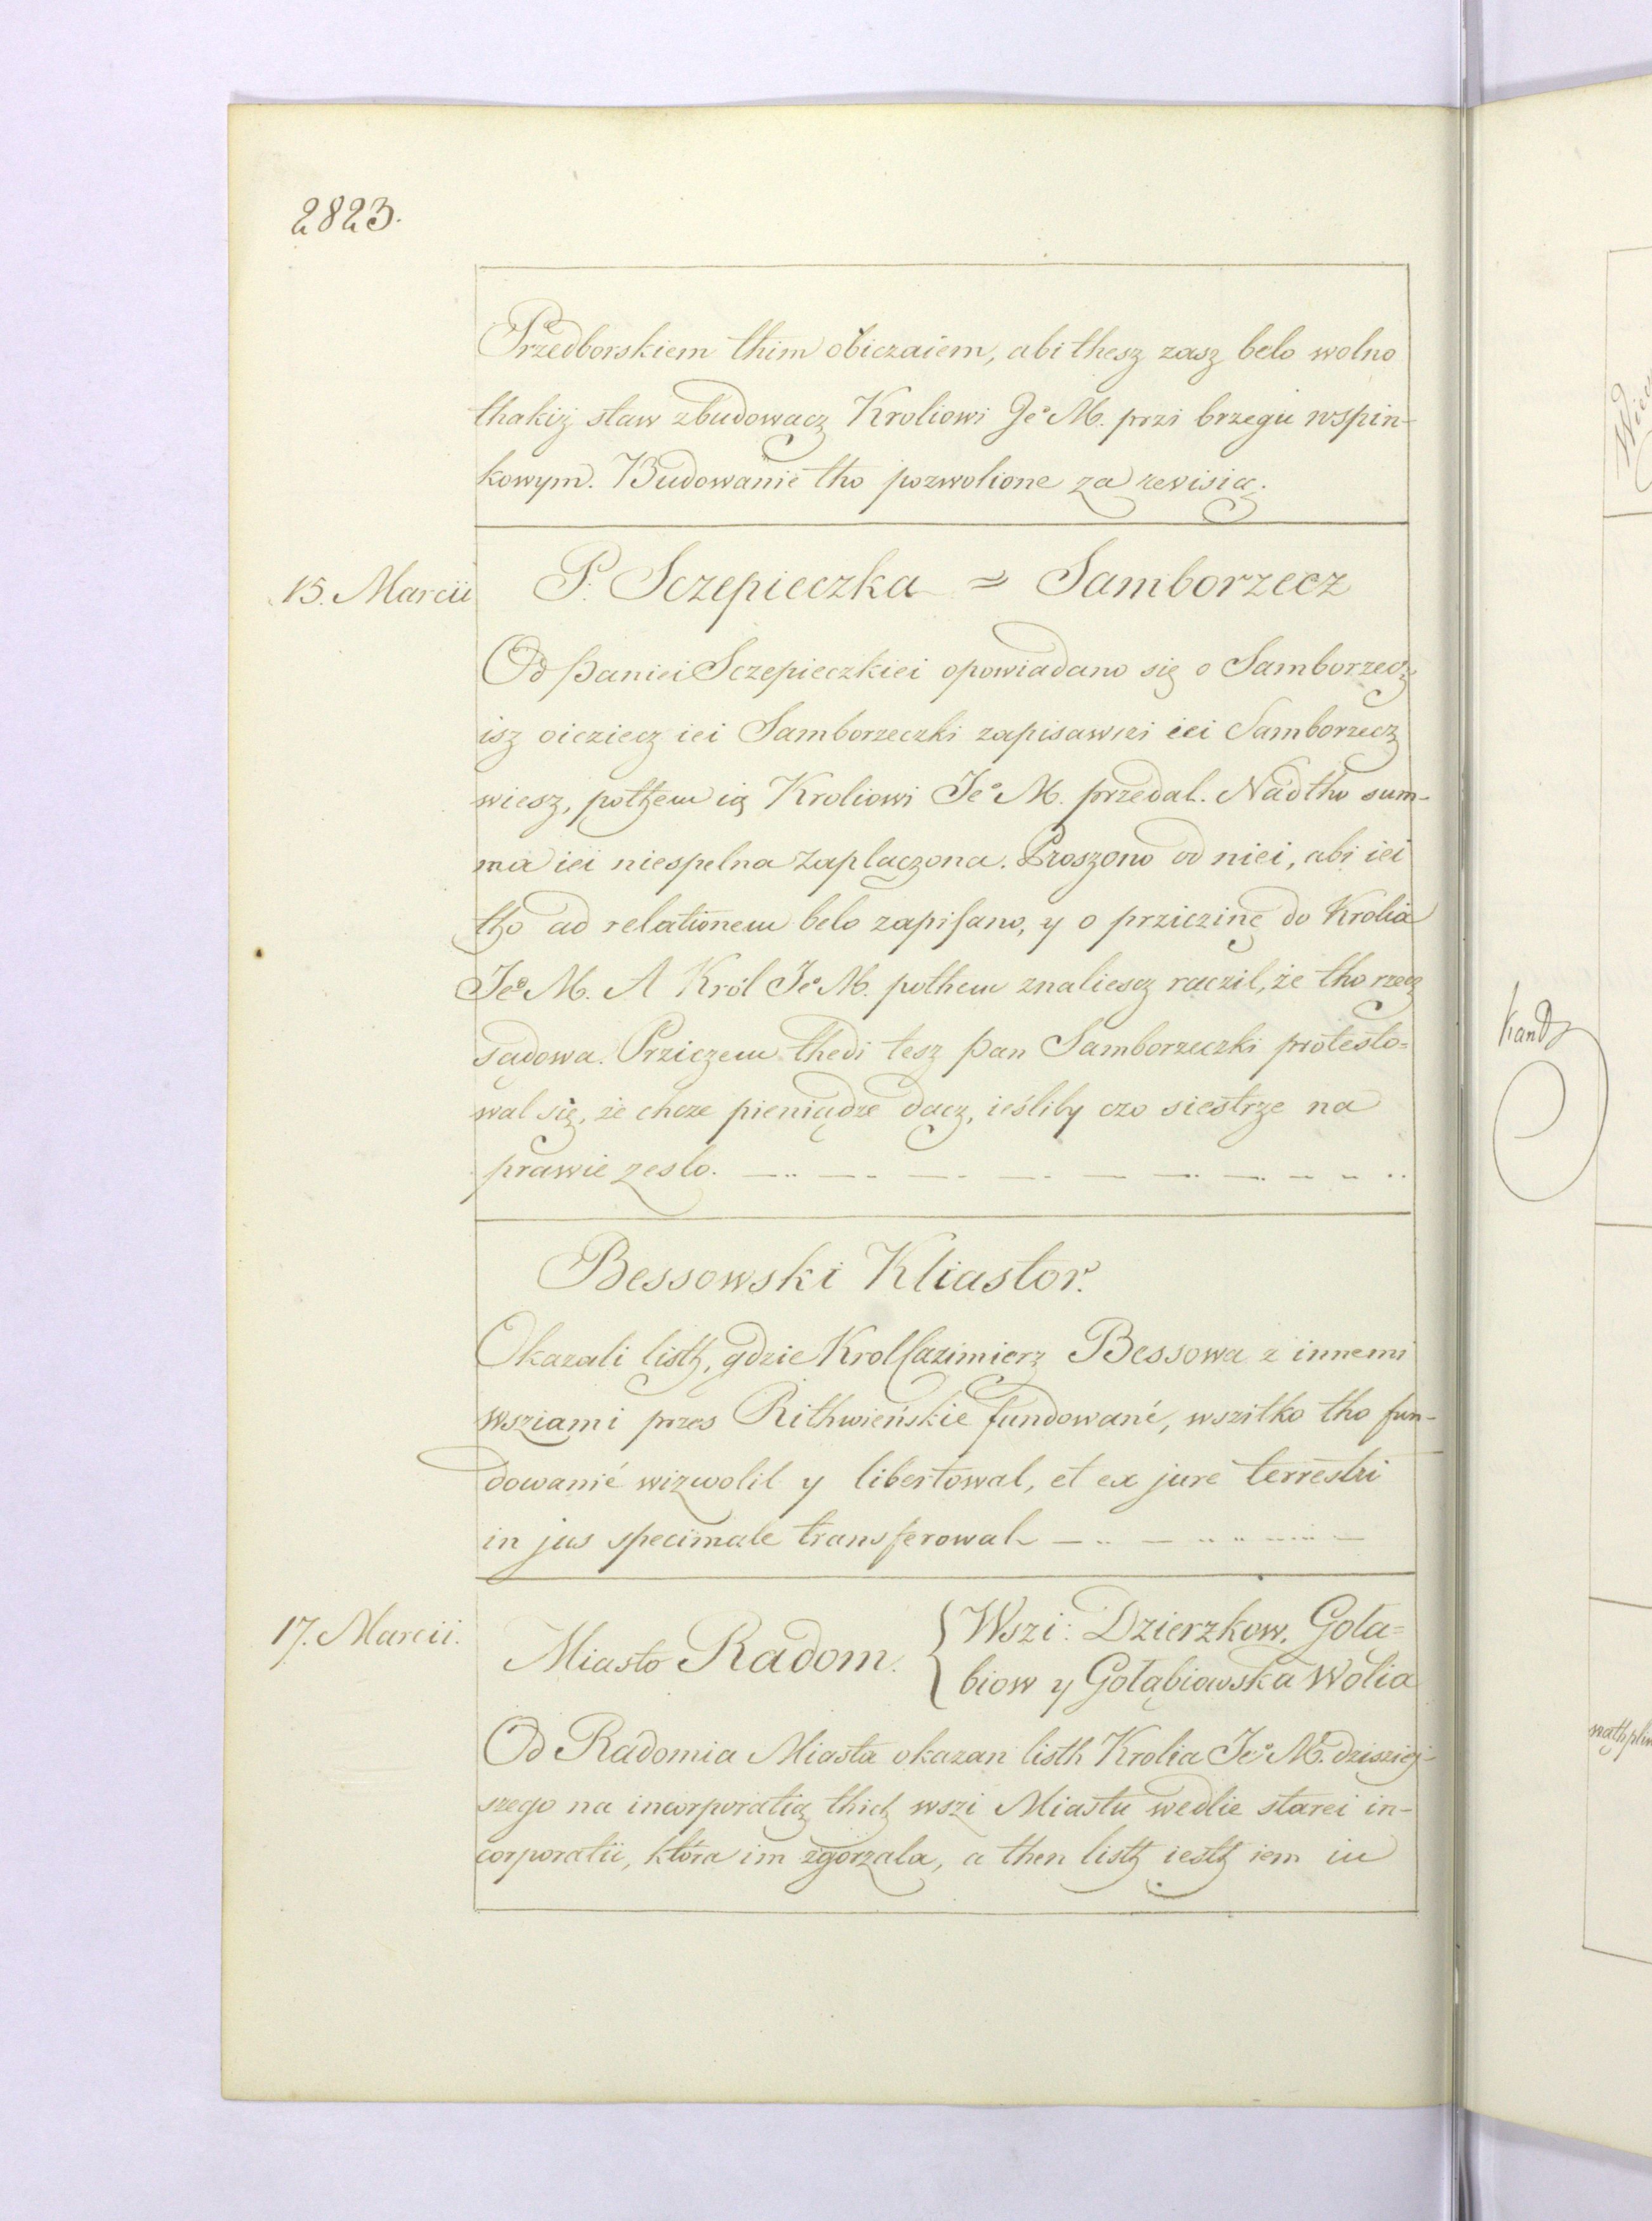 2823.
Przedborskiem thim obiczaiem, abi thesz zasz belo wolno
thakiż staw zbudowacz Kroliowi Je° M. przi brzegu wspin-
kowym. Budowanie tho pozwolione za revisią.
15. Marcii
P. Sczepieczka = Samborzecz
Od paniei Sczepieczkiei opowiadano się o Samborzecz
isz oicziecz iei Samborzeczki zapisawsei iei Samborzecz
wiesz, pothem ią Kroliowi Je° M. przedal. Nadtho sum-
ma iei niespelna zaplaczona. Proszono od niei, abi iei
tho ad relationem belo zapisano, y o prziczinę do Krolia
Je° M. A Król Je° M. pothem znaliescz raczil, że tho rzecz
sądowa. Prziczem thedi tesz pan Samborzeczki protesto-
wal się, że chcze pieniądze dacz, ieśliby czo siestrze na
prawie zeslo.
Bessowski Kliastor.
Okazali listh, gdzie Krol Cazimierz Bessowa z innemi
wsziami przes Rithwieńskie fundowané, wszitko tho fun-
dowanié wizwolil y libertowal, et ex jure terrestri
in jus specimale transferowal
17. Marcii.
Miasto Radom.
Wszi: Dzierzkow, Gola-
biow y Gołąbiowska Wolia
Od Radomia Miasta okazan listh Krolia Je° M. dzisziei-
szego na incorporatią thich wszi Miastu wedlie starei in-
corporatii, która im zgorzala, a then listh iesth iem iu